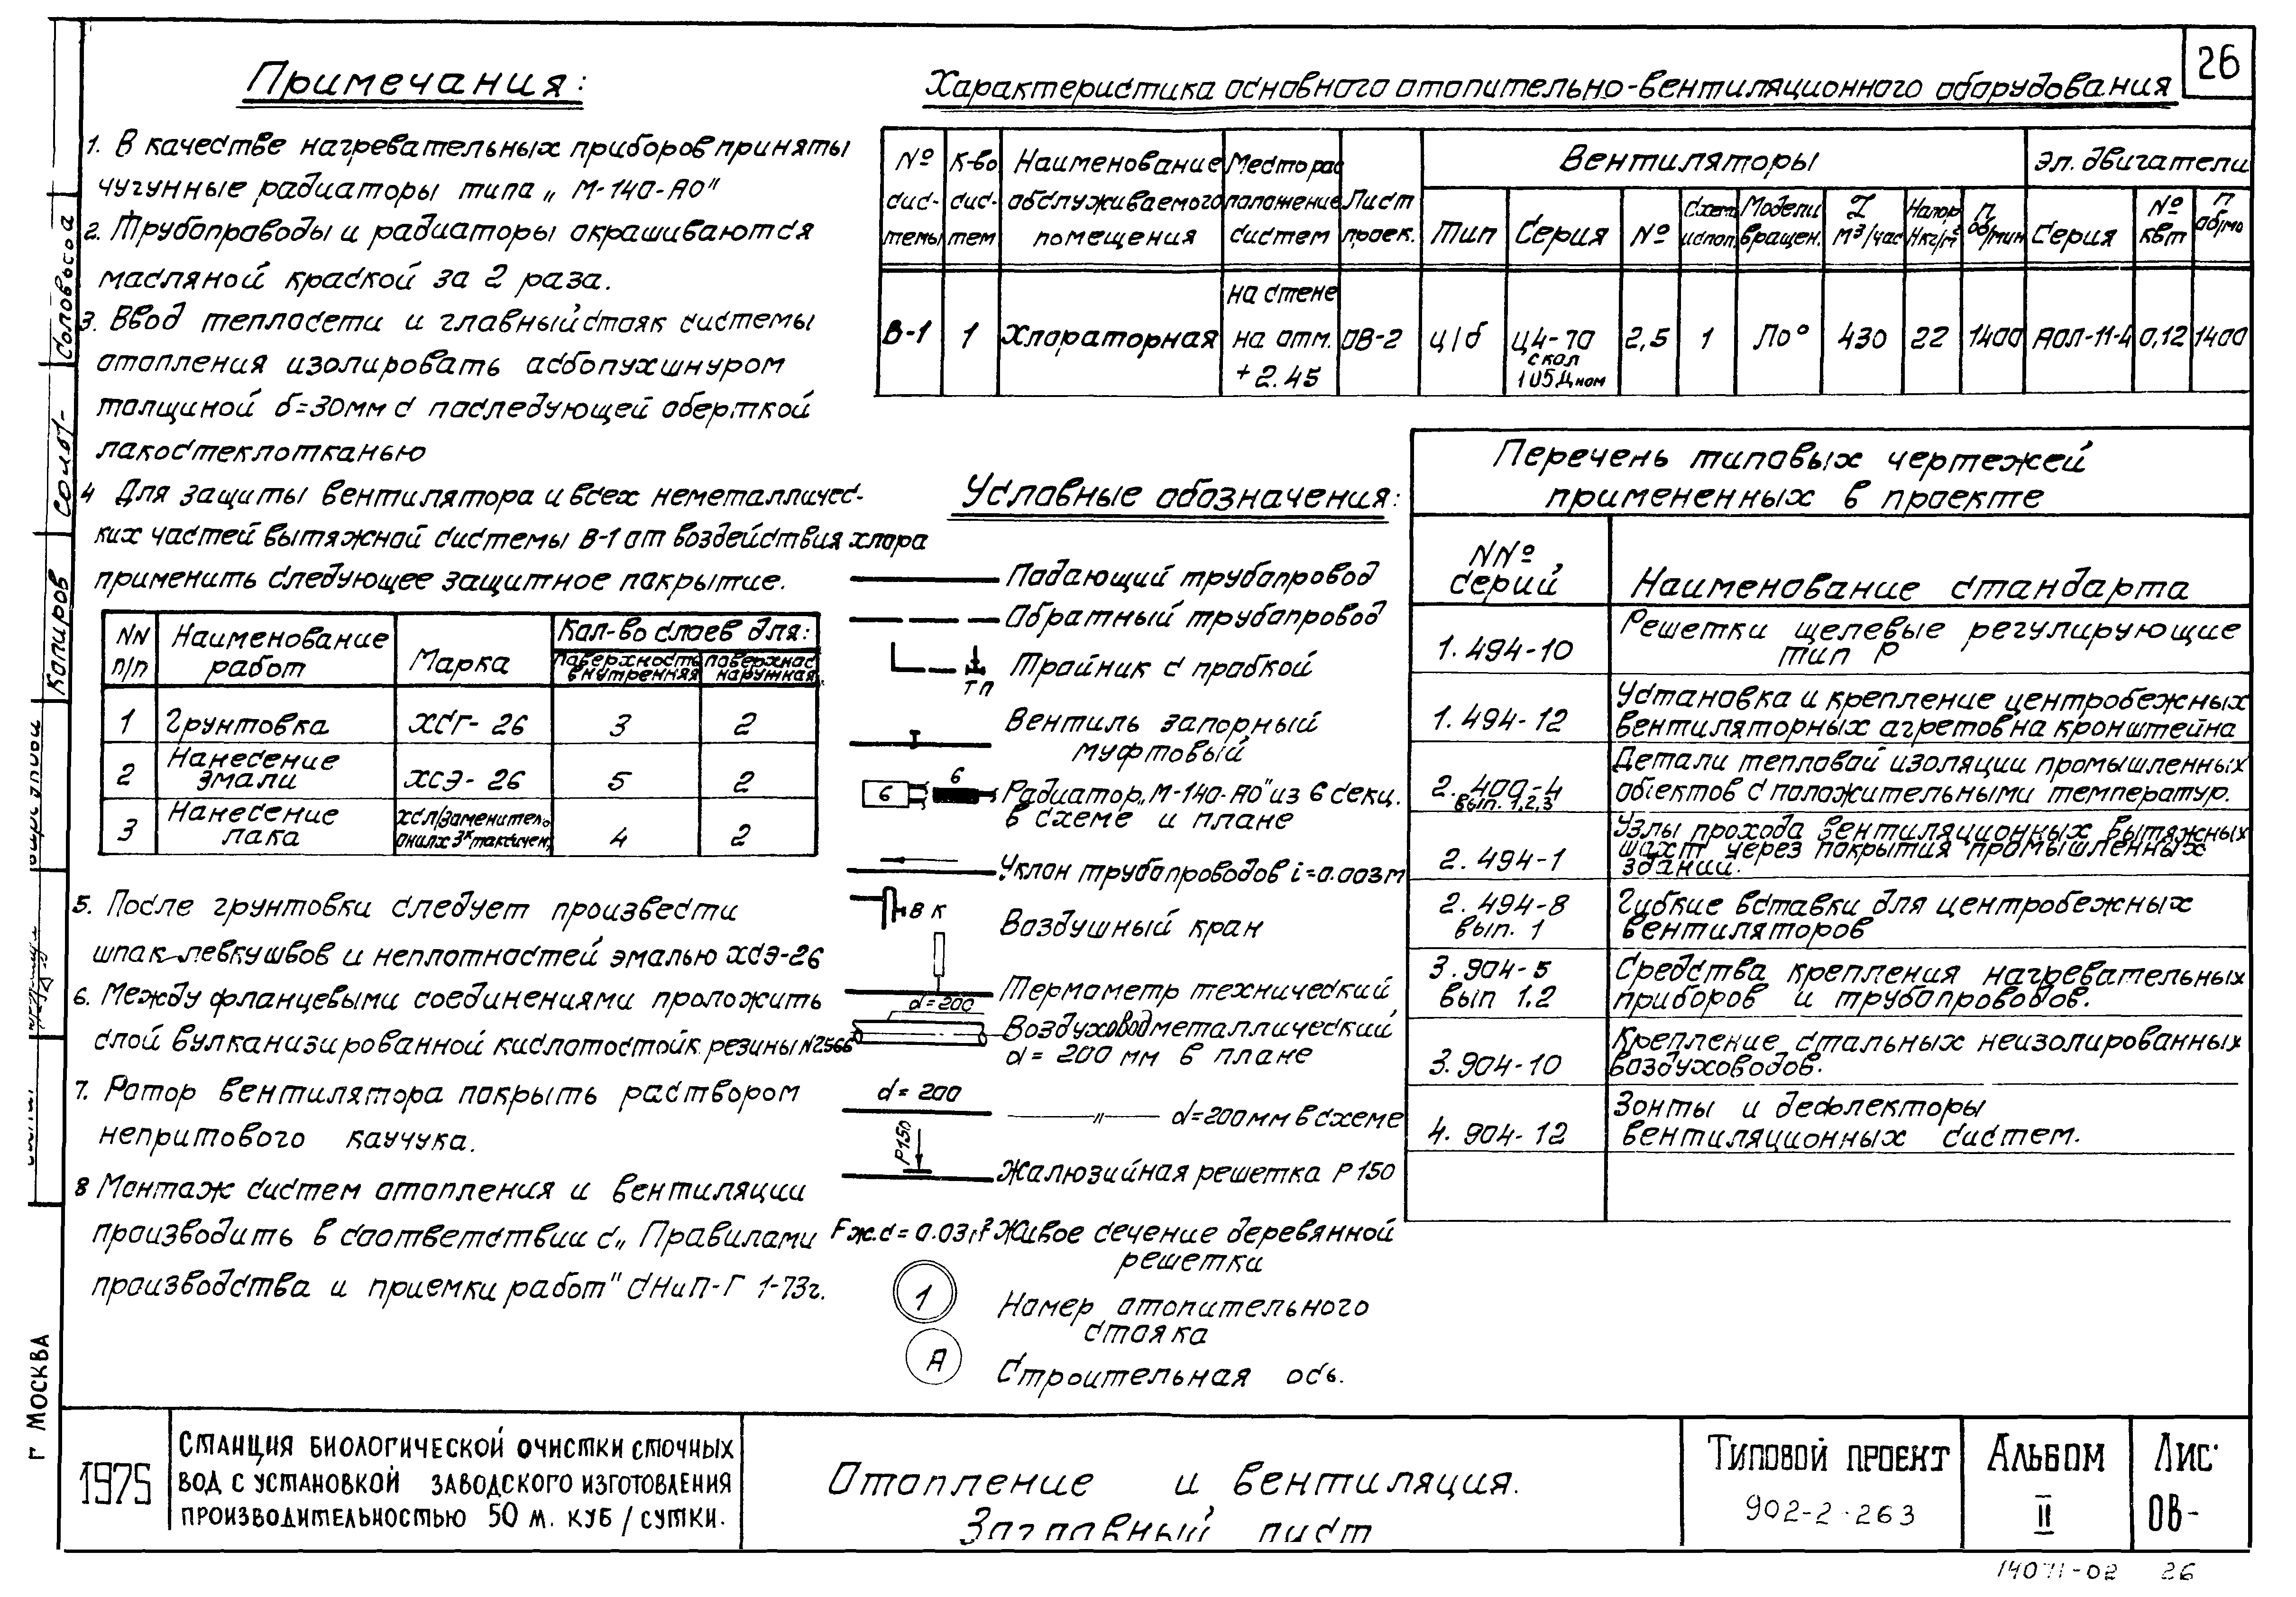 26
Примечания:
1. В качестве нагревательных приборов приняты
чугунные радиаторы типа „М-140-АО"
2. Трубопроводы и радиаторы окрашиваются
масляной краской за 2 раза.
3. Ввод теплосети и главный стояк системы
отопления изолировать асбопухшнуром
толщиной б=30мм с последующей оберткой
лакостеклотканью
4 Для защиты вентилятора и всех неметалличес-
ких частей вытяжной системы В-1 от воздействия хлора
применить следующее защитное покрытие.
NN п/п
Наименование работ
Марка
Кол-во слоев для:
поверхность внутренняя
поверхнос наружная
1 Грунтовка ХСГ-26 3 2
2 Нанесение эмали ХСЭ-26 5 2
3 Нанесение лака ХСЛ/заменитель 4 2
5. После грунтовки следует произвести
шпаклевку швов и неплотностей эмалью ХСЭ-26
6. Между фланцевыми соединениями проложить
слой вулканизированной кислотостойк. резины N2566
7. Ротор вентилятора покрыть раствором
непритового каучука.
8 Монтаж систем отопления и вентиляции
производить в соответствии с „Правилами
производства и приемки работ" СНиП-Г 1-73г.
Характеристика основного отопительно-вентиляционного оборудования
№ сис-темы
К-во сис-тем
Наименование обслуживаемого помещения
Место рас положение систем
Лист проек.
Вентиляторы
Эл. двигатели
Тип
Серия
№
Схема испол.
Модели вращен.
L м³/час
Напор Н кг/м²
П об/мин
Серия
№ квт
П об/мо
В-1 1 Хлораторная на стене на отм. +2.45 ОВ-2 ц/б Ц4-70 2,5 1 Ло° 430 22 1400 АОЛ-11-4 0,12 1400
с кол
105Дном
Условные обозначения:
Подающий трубопровод
Обратный трубопровод
Тройник с пробкой
ТП
Вентиль запорный
муфтовый
6
6
Радиатор „М-140-АО" из 6 секц.
в схеме и плане
Уклон трубопроводов i=0.003м
ВК
Воздушный кран
Термометр технический
d=200
Воздуховод металлический
d=200 мм в плане
d=200
—〃— d=200мм в схеме
Р150
Жалюзийная решетка Р150
Fж.с=0.03м² Живое сечение деревянной
решетки
1
Номер отопительного
стояка
А
Строительная ось.
Перечень типовых чертежей
примененных в проекте
NN° серий
Наименование стандарта
1. 494-10 Решетки щелевые регулирующие
тип Р
1. 494-12 Установка и крепление центробежных
вентиляторных агретов на кронштейна
2. 400-4 вып. 1,2,3 Детали тепловой изоляции промышленных
обiектов с положительными температур.
2. 494-1 Узлы прохода вентиляционных вытяжных
шахт через покрытия промышленных
зданий.
2. 494-8 вып. 1 Гибкие вставки для центробежных
вентиляторов
3. 904-5 вып 1.2 Средства крепления нагревательных
приборов и трубопроводов.
3. 904-10 Крепление стальных неизолированных
воздуховодов.
4. 904-12 Зонты и дефлекторы
вентиляционных систем.
Соловьсоа
Копиров
г Москва
1975
Станция биологической очистки сточных
вод с установкой заводского изготовления
производительностью 50 м. куб/сутки.
Отопление и вентиляция.
Заглавный лист
Типовой проект
902-2-263
Альбом
II
Лис
ОВ-
14071-02 26